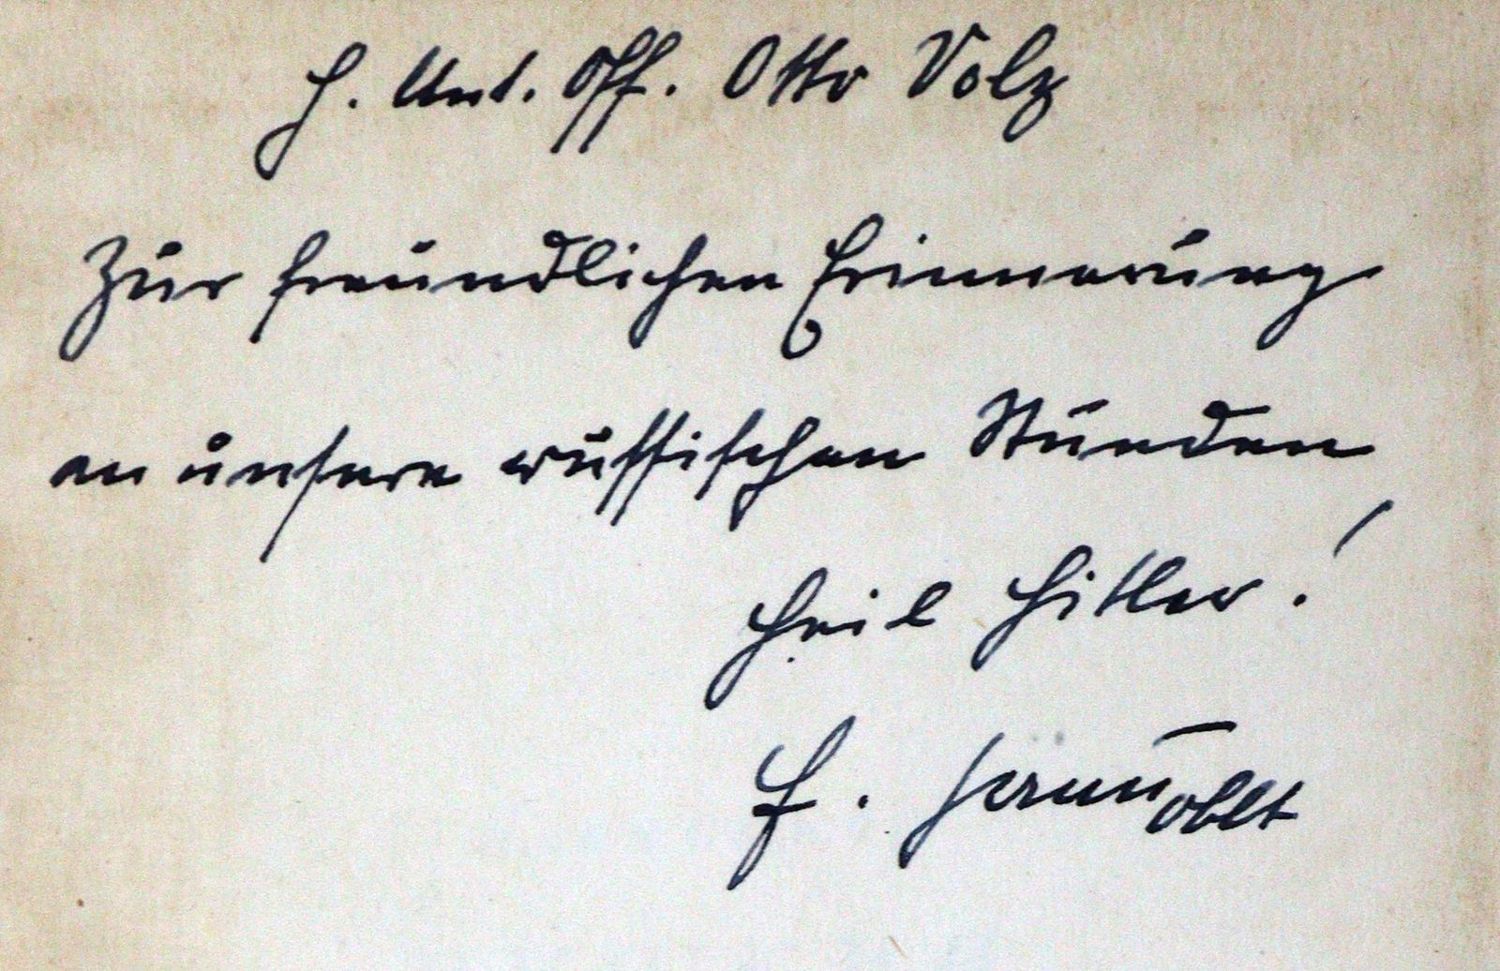 H. Unt. Off. Otto Volz
Zur freundlichen Erinnerung
an unsere russischen Stunden
Heil Hitler!
F. Oblt